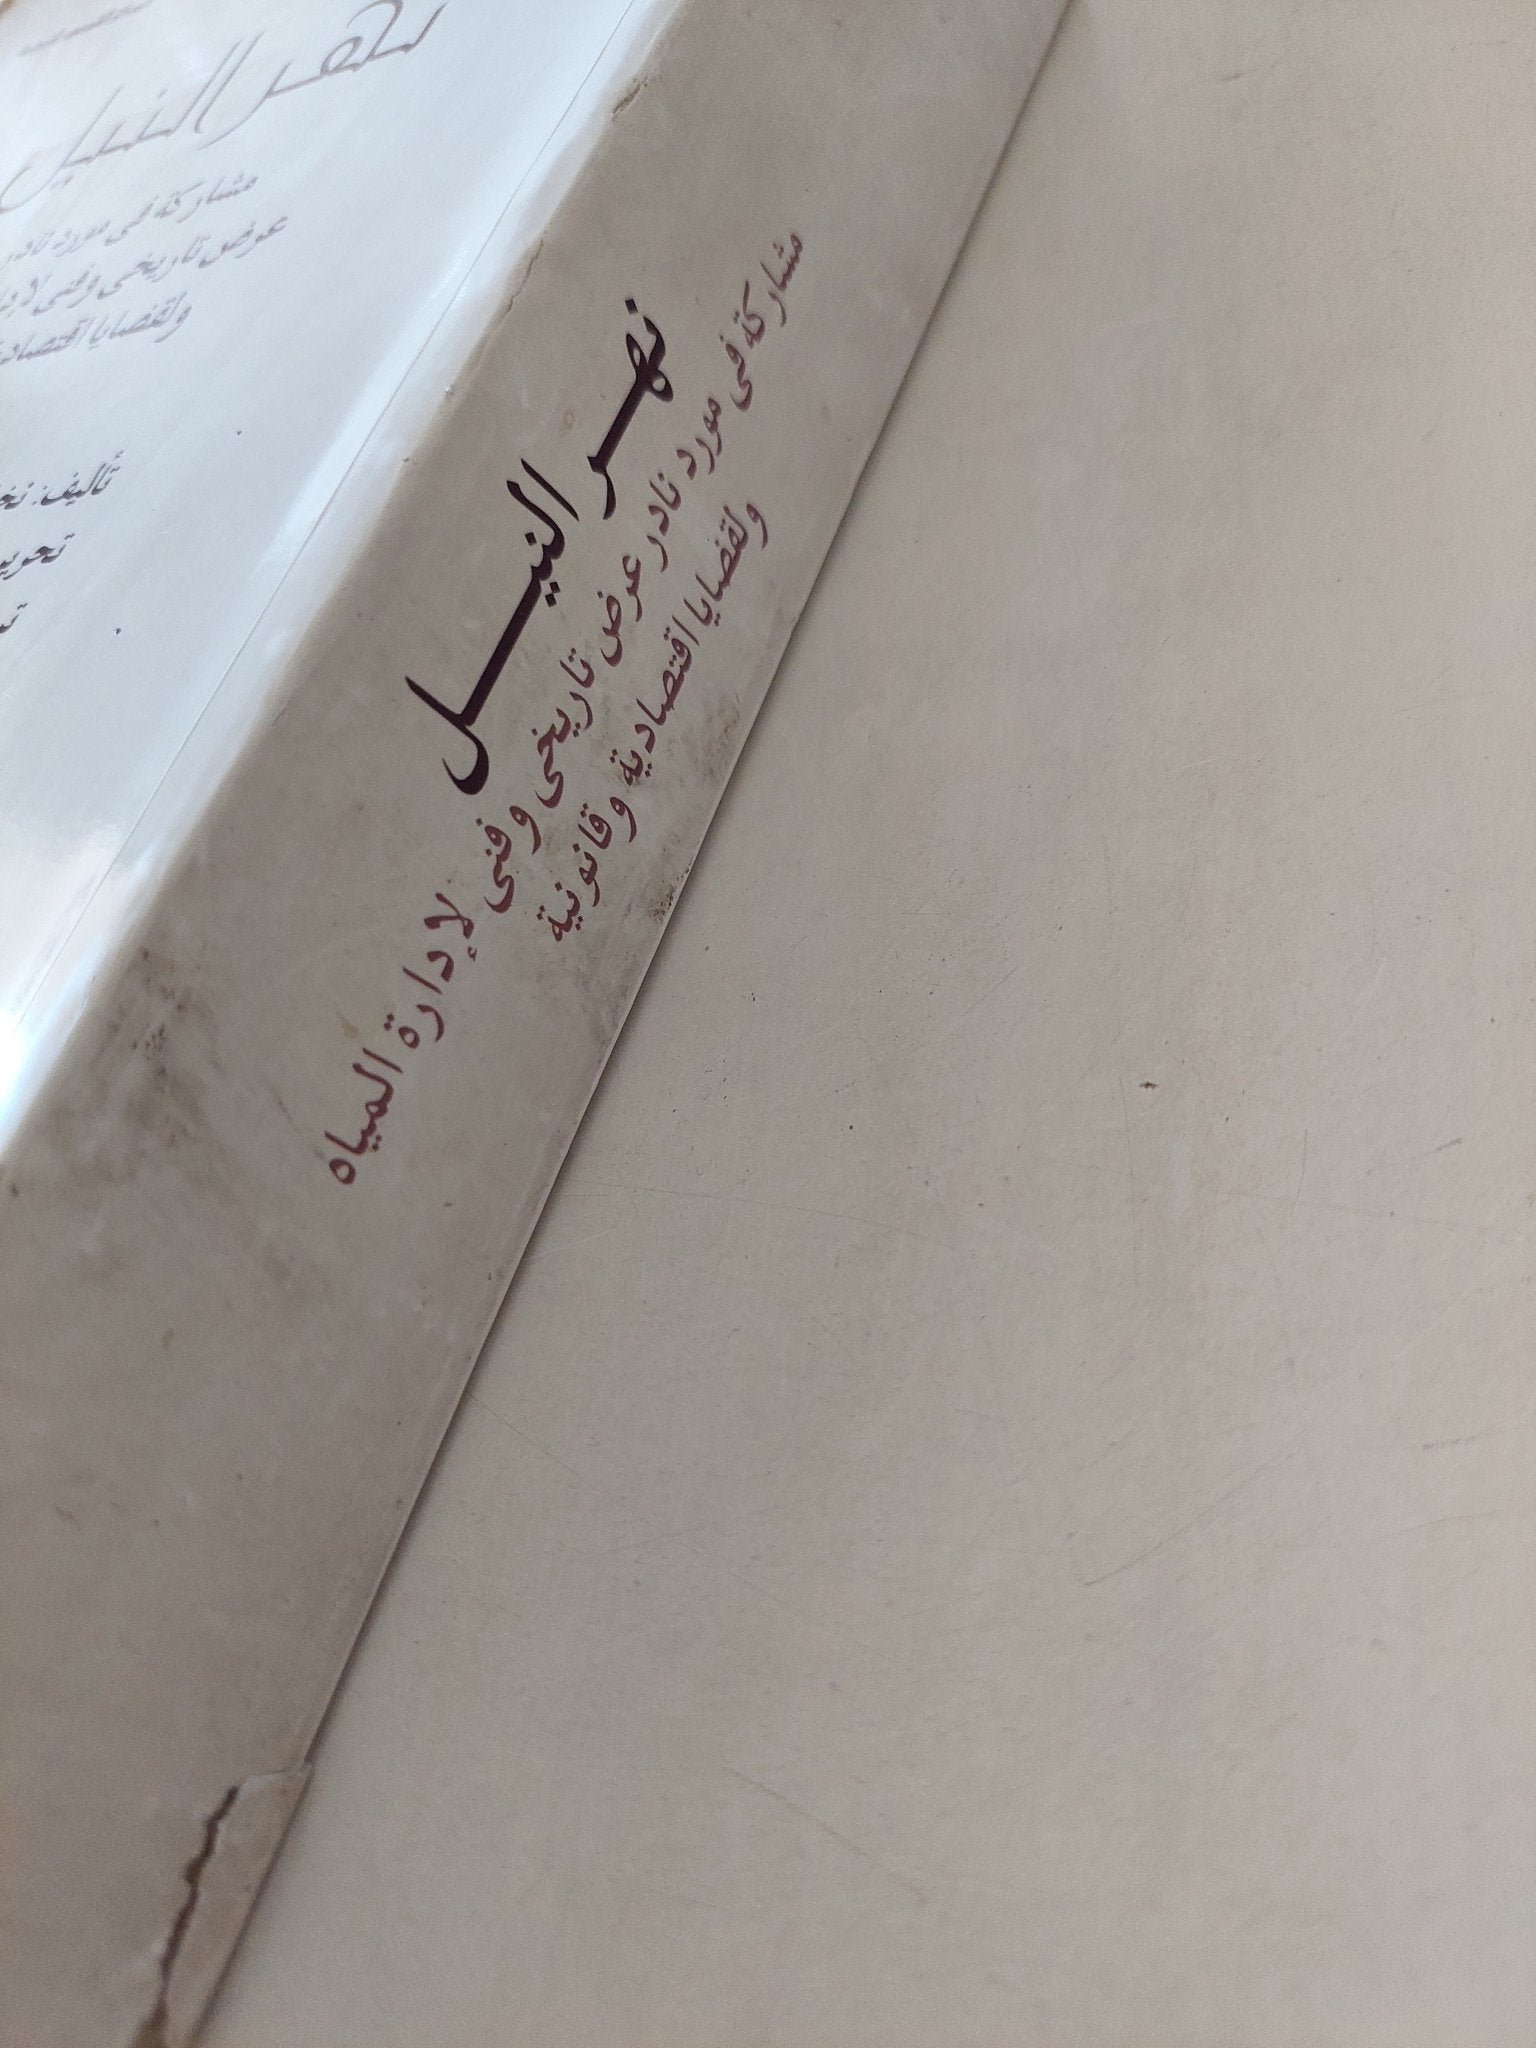 نهر النيل
مشاركة فى مورد نادر
عرض تاريخى وفنى
ولقضايا
تأليف:
نهر النيل
مشاركة فى مورد نادر عرض تاريخى وفنى لإدارة المياه
ولقضايا اقتصادية وقانونية